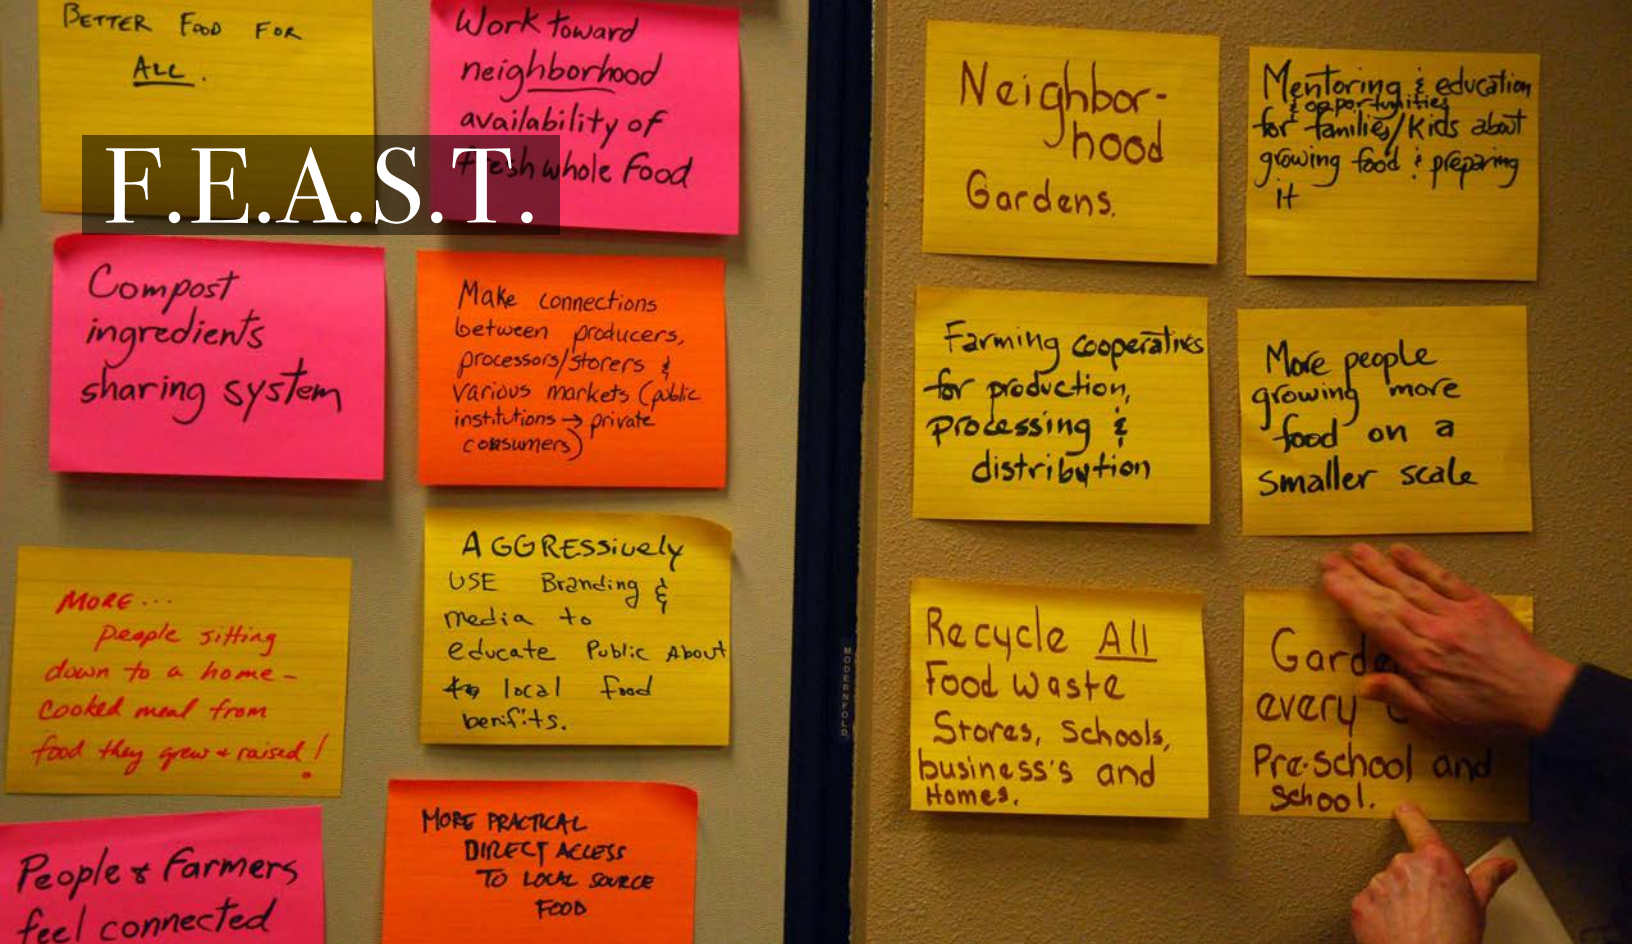 BETTER FOOD FOR
ALL.
Work toward
neighborhood
availability of
fresh whole Food
F.E.A.S.T.
Compost
ingredients
sharing system
Make connections
between producers,
processors/storers &
various markets (public
institutions → private
consumers)
MORE...
people sitting
down to a home-
cooked meal from
food they grew + raised!
AGGRESSively
USE Branding &
media to
educate Public About
local food
benifits.
People & Farmers
feel connected
MORE PRACTICAL
DIRECT ACCESS
TO LOCAL SOURCE
FOOD
Neighbor-
hood
Gardens.
Mentoring & education
& opportunities
for families/Kids about
growing food & preparing
it
Farming cooperatives
for production,
processing &
distribution
More people
growing more
food on a
smaller scale
Recycle All
Food waste
Stores, Schools,
business's and
Homes.
every
Pre-school and
School.
MODERNFOLD